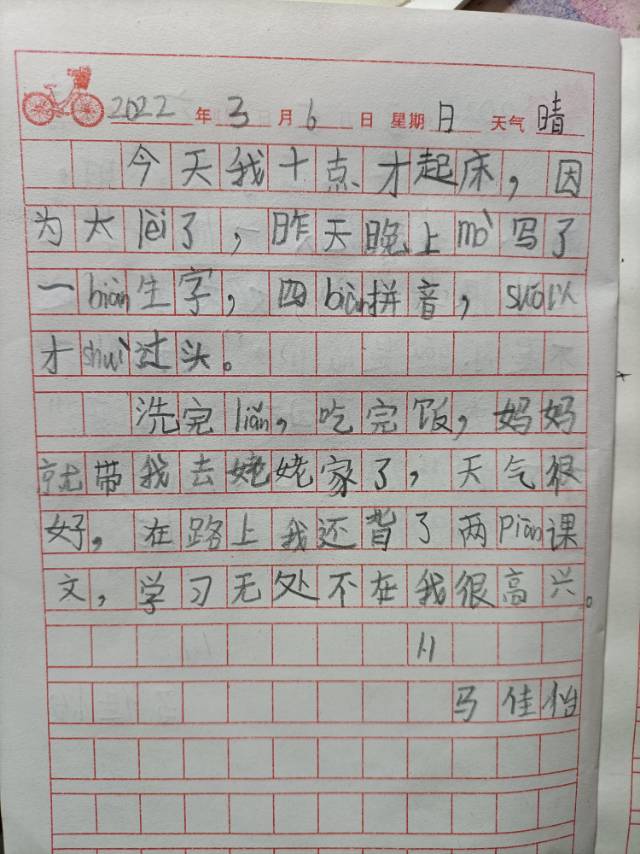 2022年3月6日 星期日 天气晴
今天我十点才起床，因
为太lèi了，昨天晚上mò写了
一biàn生字，四biàn拼音，suǒ以
才shuì过头。
洗完liǎn，吃完饭，妈妈
就带我去姥姥家了，天气很
好，在路上我还背了两Piān课
文，学习无处不在我很高兴。
马佳怡